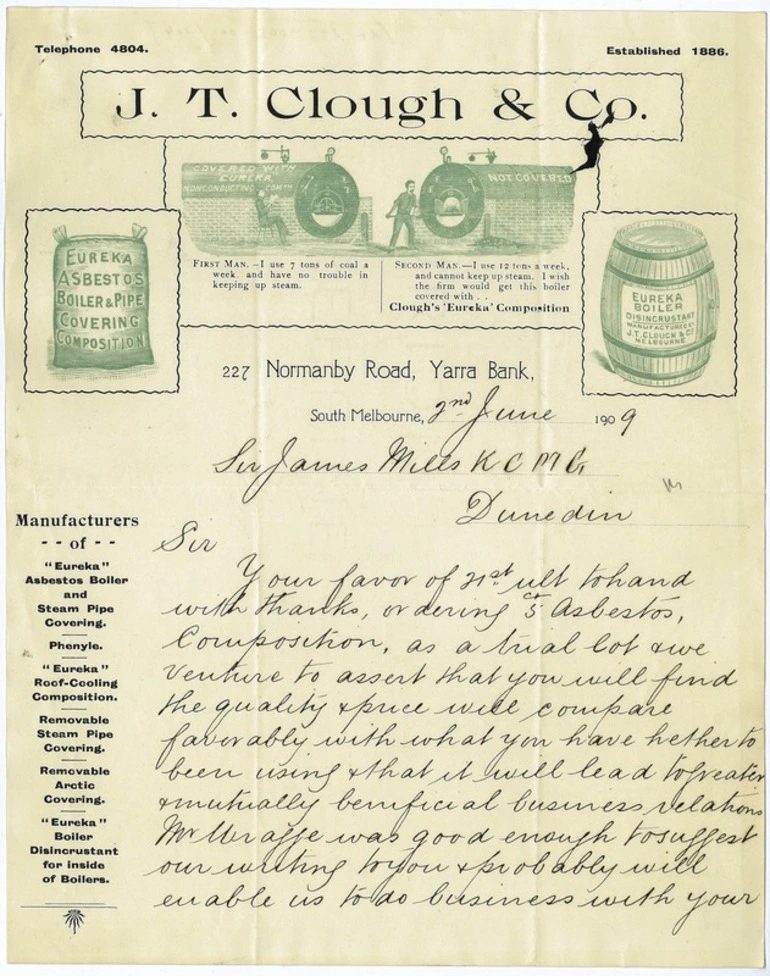 Telephone 4804.
Established 1886.
J. T. Clough & Co.
COVERED WITH
EUREKA
NONCONDUCTING COMTN
NOT COVERED
FIRST MAN.—I use 7 tons of coal a
week and have no trouble in
keeping up steam.
SECOND MAN.—I use 12 tons a week,
and cannot keep up steam. I wish
the firm would get this boiler
covered with . .
Clough's 'Eureka' Composition
EUREKA
ASBESTOS
BOILER & PIPE
COVERING
COMPOSITION
EUREKA
BOILER
DISINCRUSTANT
MANUFACTURED BY
J.T. CLOUGH & Co
MELBOURNE
227 Normanby Road, Yarra Bank,
South Melbourne, 2nd June 1909
Sir James Mills K C M G
Dunedin
Manufacturers
- - of - -
"Eureka"
Asbestos Boiler
and
Steam Pipe
Covering.
Phenyle.
"Eureka"
Roof-Cooling
Composition.
Removable
Steam Pipe
Covering.
Removable
Arctic
Covering.
"Eureka"
Boiler
Disincrustant
for inside
of Boilers.
Sir
Your favor of 21st ult to hand
with thanks, ordering 5 ct Asbestos,
Composition, as a trial lot & we
venture to assert that you will find
the quality & price will compare
favorably with what you have hetherto
been using & that it will lead to greater
& mutually benificial business relations
Mr Wragge was good enough to suggest
our writing to you & probably will
enable us to do business with your